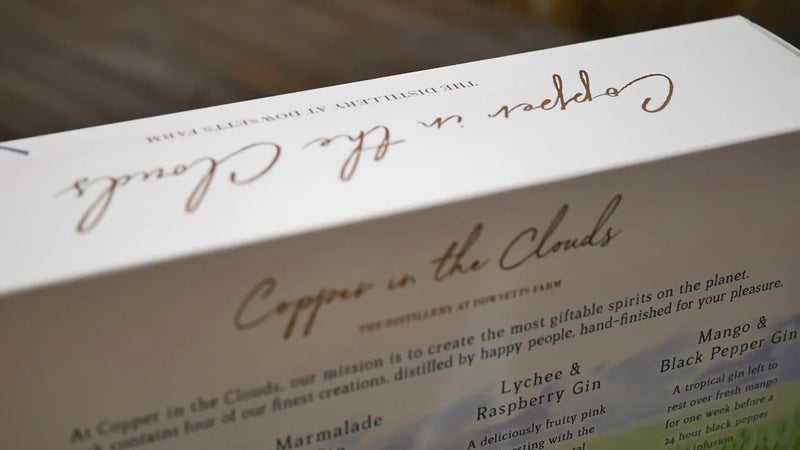 Copper in the Clouds
THE DISTILLERY AT DOWSETTS FARM
Copper in the Clouds
THE DISTILLERY AT DOWSETTS FARM
At Copper in the Clouds, our mission is to create the most giftable spirits on the planet.
contains four of our finest creations, distilled by happy people, hand-finished for your pleasure.
Marmalade
Lychee &
Raspberry Gin
A deliciously fruity pink
with the
Mango &
Black Pepper Gin
A tropical gin left to
rest over fresh mango
for one week before a
24 hour black pepper
infusion